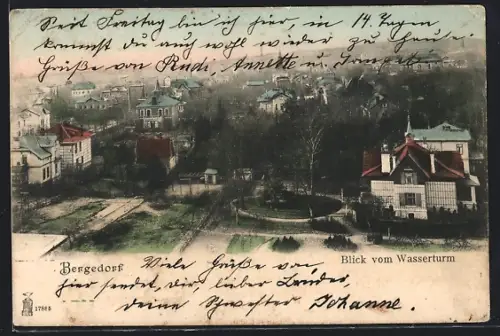 Seit Freitag bin ich hier, in 14 Tagen
kommst du auch wohl wieder zu Hause.
Grüße von Rudi, Annette u.
Bergedorf
Blick vom Wasserturm
Viele Grüße von
hier sendet, dir lieber Bruder,
deine Schwester Johanne.